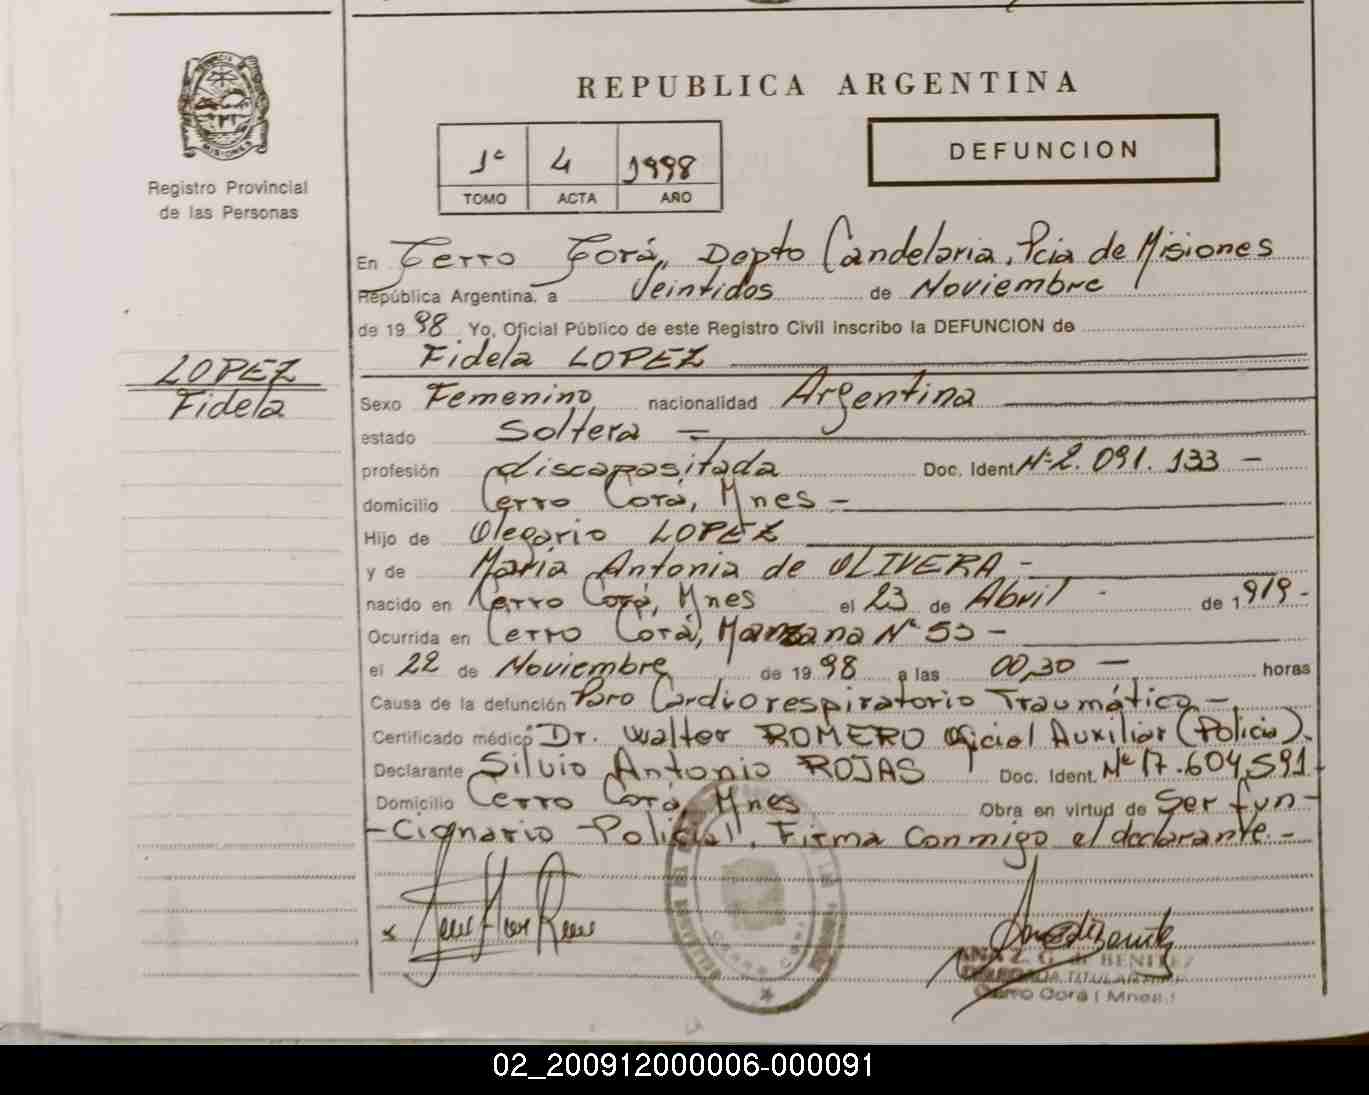 REPUBLICA ARGENTINA
1º 4 1998
TOMO ACTA AÑO
DEFUNCION
MISIONES
Registro Provincial
de las Personas
LOPEZ
Fidela
En Cerro Corá, Depto Candelaria, Pcia de Misiones
República Argentina, a Veintidos de Noviembre
de 1998 Yo, Oficial Público de este Registro Civil inscribo la DEFUNCION de
Fidela LOPEZ
Sexo Femenino nacionalidad Argentina
estado Soltera -
profesión discapasitada Doc. Ident. Nº 2.091.133 -
domicilio Cerro Corá, Mnes -
Hijo de Olegario LOPEZ
y de María Antonia de OLIVERA -
nacido en Cerro Corá, Mnes el 23 de Abril - de 1919 -
Ocurrida en Cerro Corá, Manzana Nº 53 -
el 22 de Noviembre de 1998 a las 00,30 - horas
Causa de la defunción Paro Cardiorespiratorio Traumático -
Certificado médico Dr. Walter ROMERO Oficial Auxiliar (Policia).
Declarante Silvio Antonio ROJAS Doc. Ident. Nº 17.604.591 -
Domicilio Cerro Corá, Mnes Obra en virtud de Ser fun-
-cionario Policial, Firma Conmigo el declarante.-
ANA Z. G. de BENITEZ
DELEGADA TITULAR
Cerro Corá (Mnes.)
02_200912000006-000091